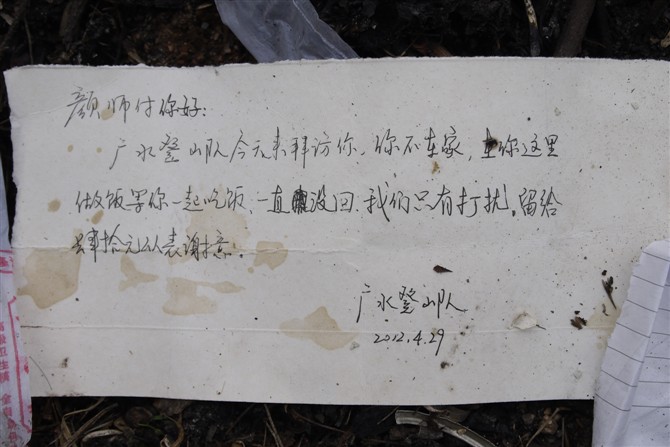 颜师付你好:
广水登山队今天来拜访你,你不在家,在你这里
做饭等你一起吃饭,一直没回.我们只有打扰。留给
肆拾元以表谢意。
广水登山队
2012.4.29